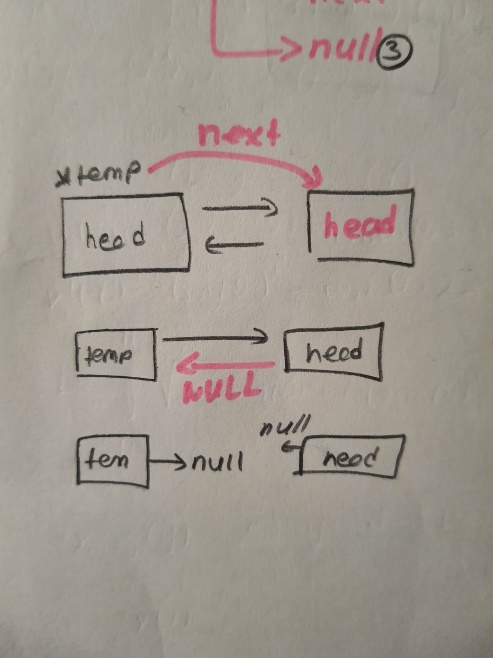 null 3
next
*temp
head head
temp head
NULL
null
tem null head